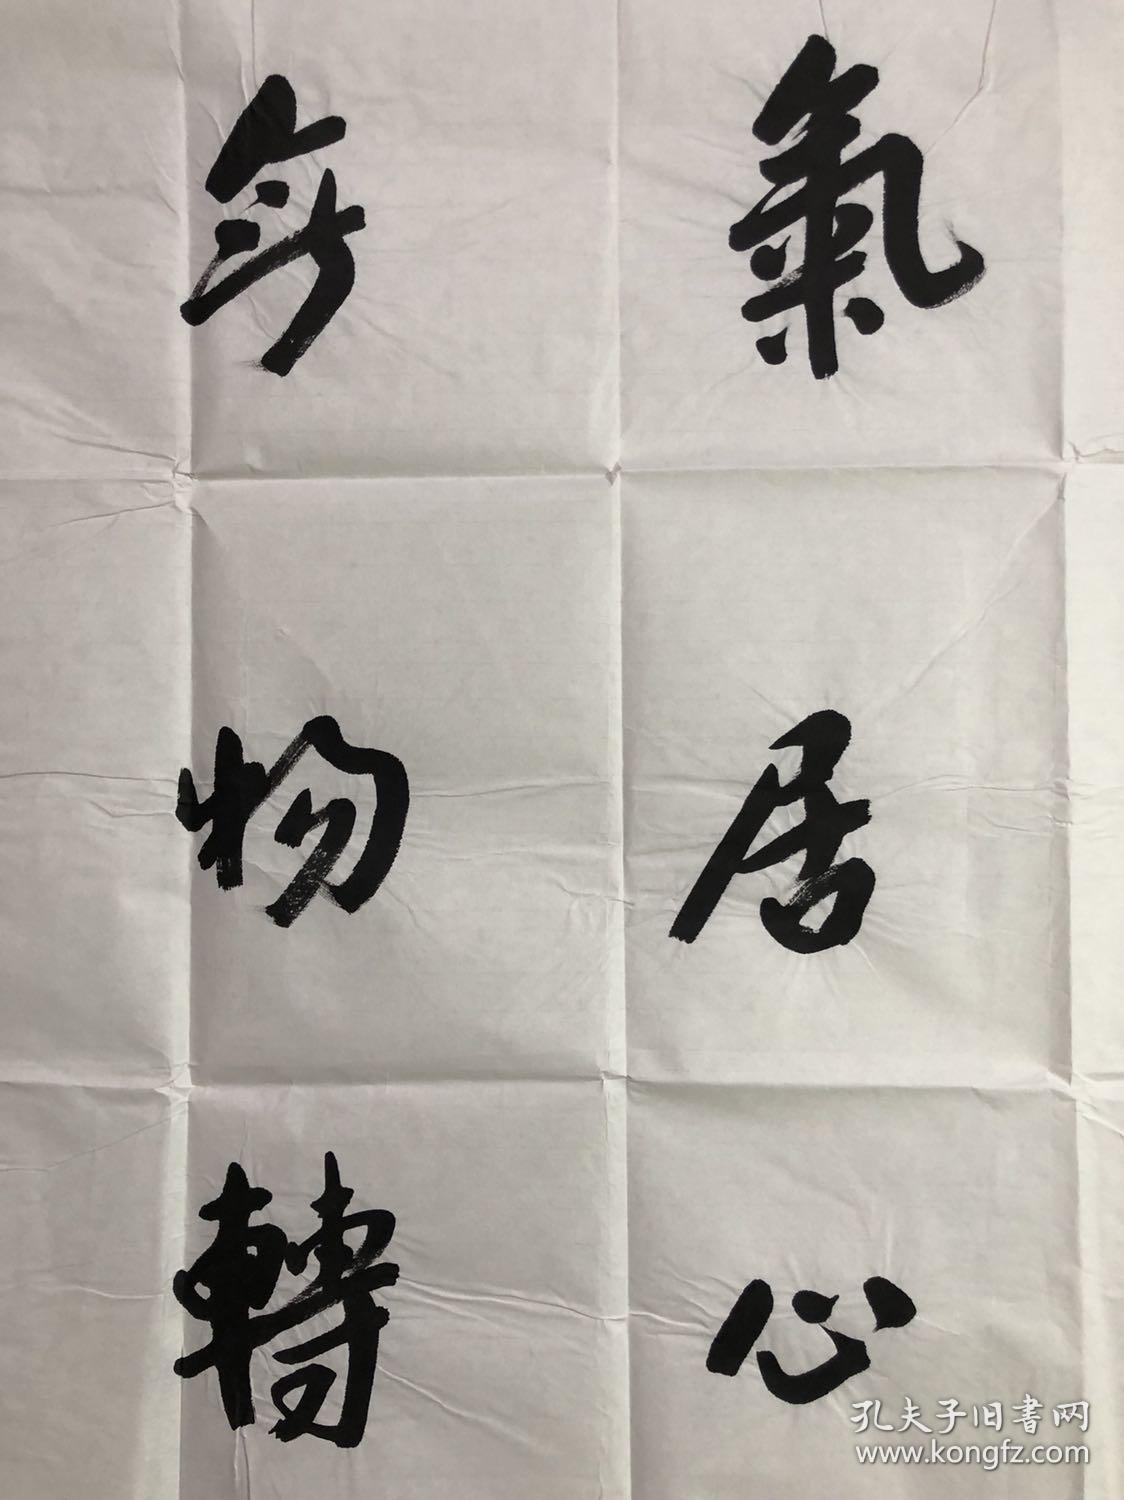 氣居心
物轉
孔夫子旧書网
www.kongfz.com